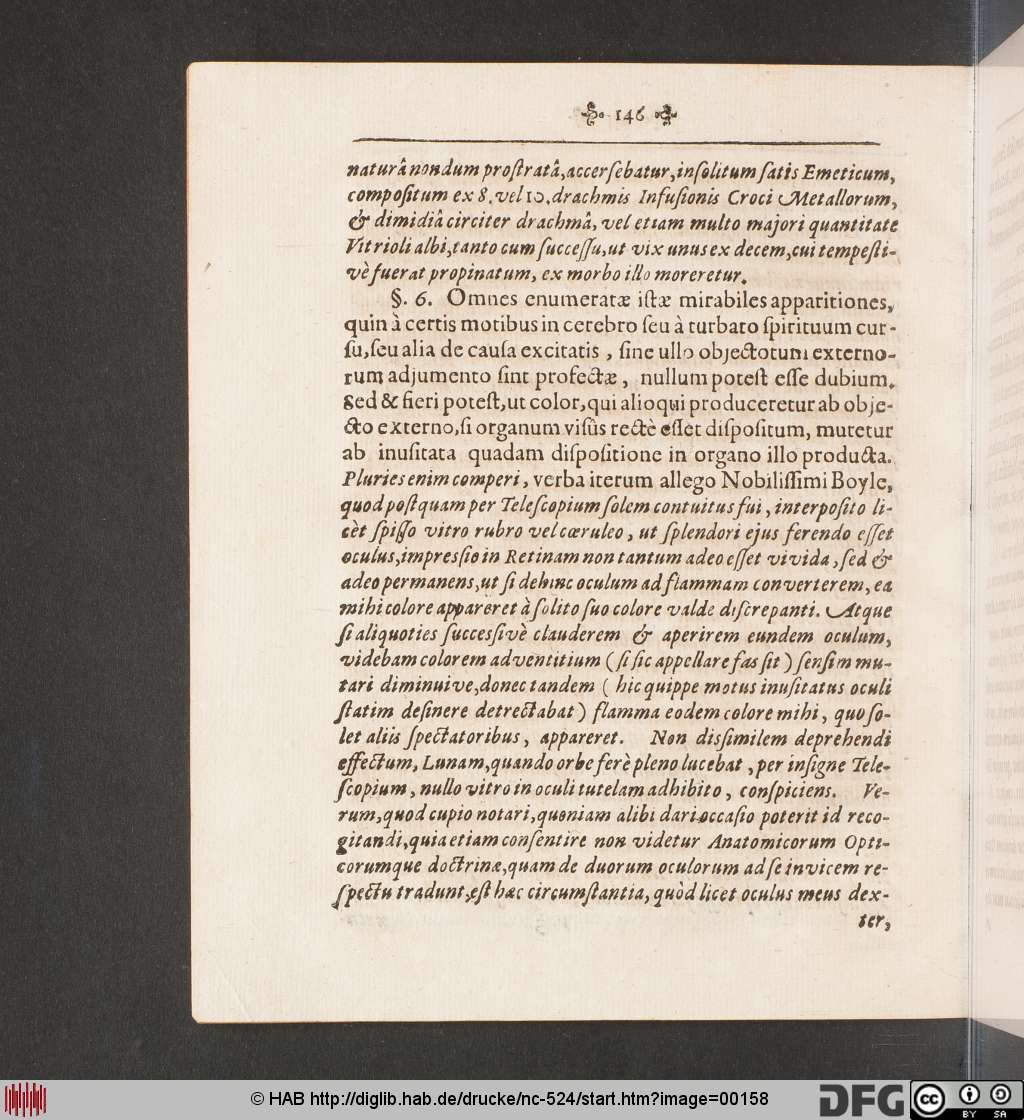 146
naturâ nondum prostratâ, accersebatur, insolitum satis Emeticum,
compositum ex 8. vel 10. drachmis Infusionis Croci Metallorum,
& dimidiâ circiter drachmâ, vel etiam multo majori quantitate
Vitrioli albi, tanto cum successu, ut vix unus ex decem, cui tempesti-
vè fuerat propinatum, ex morbo illo moreretur.
§. 6. Omnes enumeratæ istæ mirabiles apparitiones,
quin à certis motibus in cerebro seu à turbato spirituum cur-
su, seu alia de causa excitatis, sine ullo objectotum externo-
rum adjumento sint profectæ, nullum potest esse dubium.
Sed & fieri potest, ut color, qui alioqui produceretur ab obje-
cto externo, si organum visûs rectè esset dispositum, mutetur
ab inusitata quadam dispositione in organo illo producta.
Pluries enim comperi, verba iterum allego Nobilissimi Boyle,
quod postquam per Telescopium solem contuitus fui, interposito li-
cèt spisso vitro rubro vel cœruleo, ut splendori ejus ferendo esset
oculus, impressio in Retinam non tantum adeo esset vivida, sed &
adeo permanens, ut si dehinc oculum ad flammam converterem, ea
mihi colore appareret à solito suo colore valde discrepanti. Atque
si aliquoties successivè clauderem & aperirem eundem oculum,
videbam colorem adventitium (si sic appellare fas sit) sensim mu-
tari diminuive, donec tandem (hic quippe motus inusitatus oculi
statim desinere detrectabat) flamma eodem colore mihi, quo so-
let aliis spectatoribus, appareret. Non dissimilem deprehendi
effectum, Lunam, quando orbe ferè pleno lucebat, per insigne Tele-
scopium, nullo vitro in oculi tutelam adhibito, conspiciens. Ve-
rum, quod cupio notari, quoniam alibi dari occasio poterit id reco-
gitandi, quia etiam consentire non videtur Anatomicorum Opti-
corumque doctrinæ, quam de duorum oculorum ad se invicem re-
spectu tradunt, est hæc circumstantia, quòd licet oculus meus dex-
ter,
© HAB http://diglib.hab.de/drucke/nc-524/start.htm?image=00158
DFG
cc BY SA